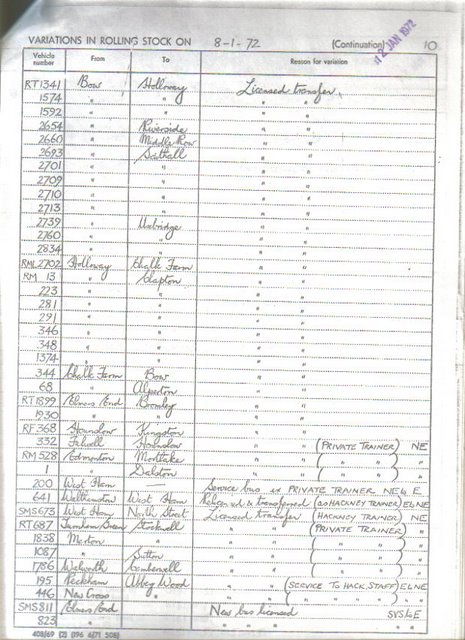 VARIATIONS IN ROLLING STOCK ON 8-1-72 (Continuation) 10
12 JAN 1972
Vehicle number From To Reason for variation
RT1341 Bow Holloway Licensed transfer.
1574 " " " "
1592 " " " "
2654 " Riverside " "
2660 " Middle Row " "
2693 " Southall " "
2701 " " " "
2709 " " " "
2710 " " " "
2713 " " " "
2739 " Uxbridge " "
2760 " " " "
2834 " " " "
RML2702 Holloway Chalk Farm " "
RM 13 " Clapton " "
223 " " " "
281 " " " "
291 " " " "
346 " " " "
348 " " " "
1374 " " " "
344 Chalk Farm Bow " "
68 " Alperton " "
RT1899 Elmers End Bromley " "
1930 " " " "
RF368 Hounslow Kingston " "
332 Fulwell Hounslow " " (PRIVATE TRAINER) NE
RM528 Edmonton Mortlake " " ( " " ) "
1 " Dalston " " ( " " ) "
200 West Ham Service bus ex PRIVATE TRAINER NE to E
641 Walthamstow West Ham Relicensed & transferred (as HACKNEY TRAINER) E to NE
SMS673 West Ham North Street Licensed transfer (HACKNEY TRAINER) NE
RT687 Turnham Green Stockwell " " (PRIVATE TRAINER) "
1838 Merton " " " ( " " ) "
1087 " Sutton " " ( " " ) "
1786 Walworth Camberwell " " ( " " ) "
195 Peckham Abbey Wood " " (SERVICE TO HACK. STAFF) E to NE
446 New Cross " " " ( " " ) "
SMS811 Elmers End New bus licensed SVS to E
823 " " " " "
408/69 (2)